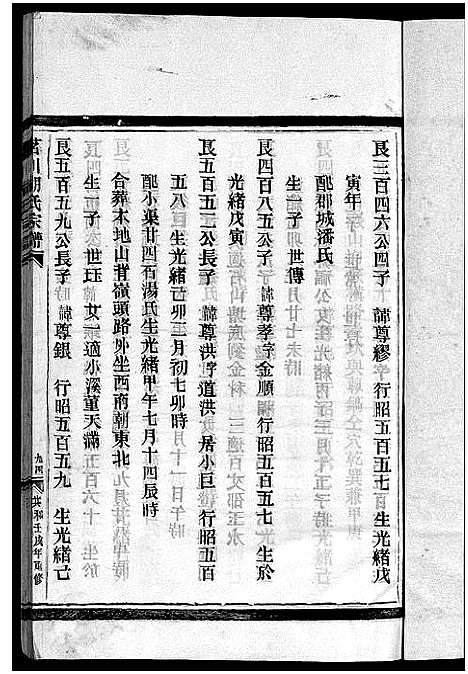 良三百四六公四子 諱尊繆 行昭五百五七 生光緒戊
寅年
配郡城潘氏
生一子 世傳
良四百八五公子 諱尊孝字金順 行昭五百五七 生於
光緒戊寅
良五百五二公長子 諱尊洪字道洪 居小巨 行昭五百
五八 生光緒己卯三月初七卯時
配小渠廿四石湯氏生光緒甲午七月十四辰時
合葬本地山背嶺頭路外坐西南朝東北
生一子 世珏 女一適小溪董天滿
良五百五九公長子 諱尊銀 行昭五百五九 生光緒己
川胡氏宗譜
九四
共和壬戌年重修